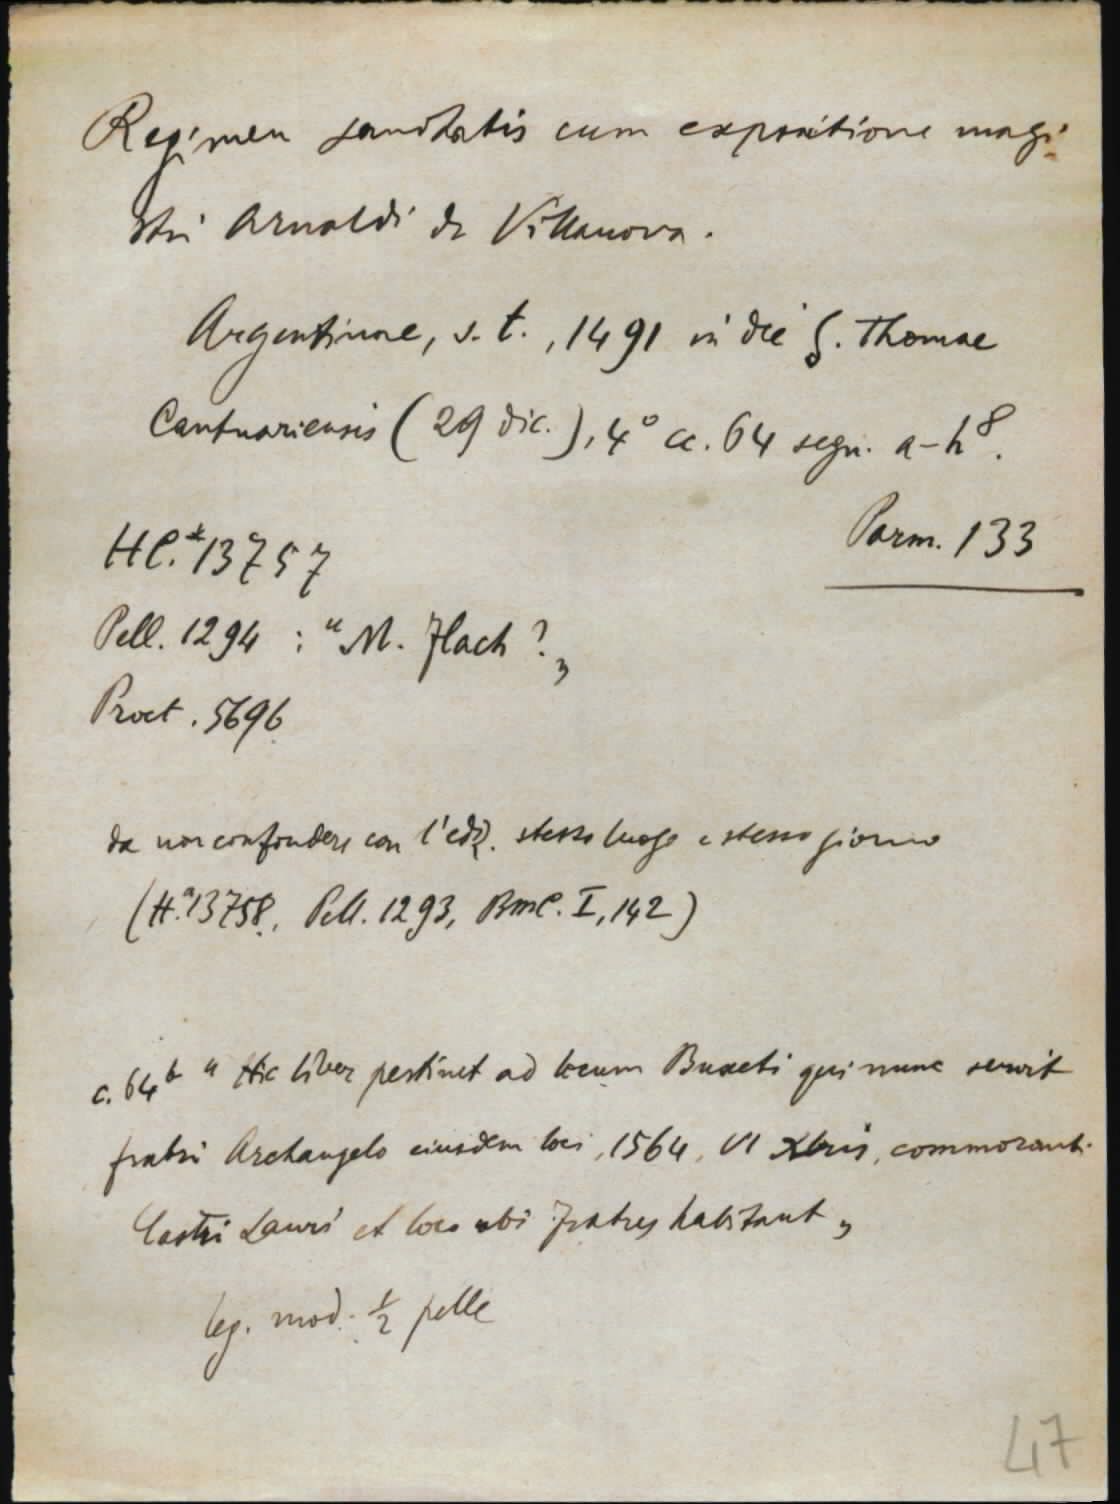 Regimen sanitatis cum expositione magi-
stri Arnaldi de Villanova.
Argentinae, s. t., 1491 in die S. Thomae
Cantuariensis (29 dic.), 4° cc. 64 segn. a-h⁸.
Parm. 133
HC.*13757
Pell. 1294 : "M. Flach ?„
Proct. 5696
da non confondere con l'ediz. stesso luogo e stesso giorno
(H.*13758, Pell. 1293, BMC. I, 142)
c. 64ᵇ "Hic liber pertinet ad locum Buxeti qui nunc servit
fratri Archangelo eiusdem loci, 1564, VI Xbris, commoranti
Castri Lauri et loco ubi fratres habitant„
leg. mod. ½ pelle
47